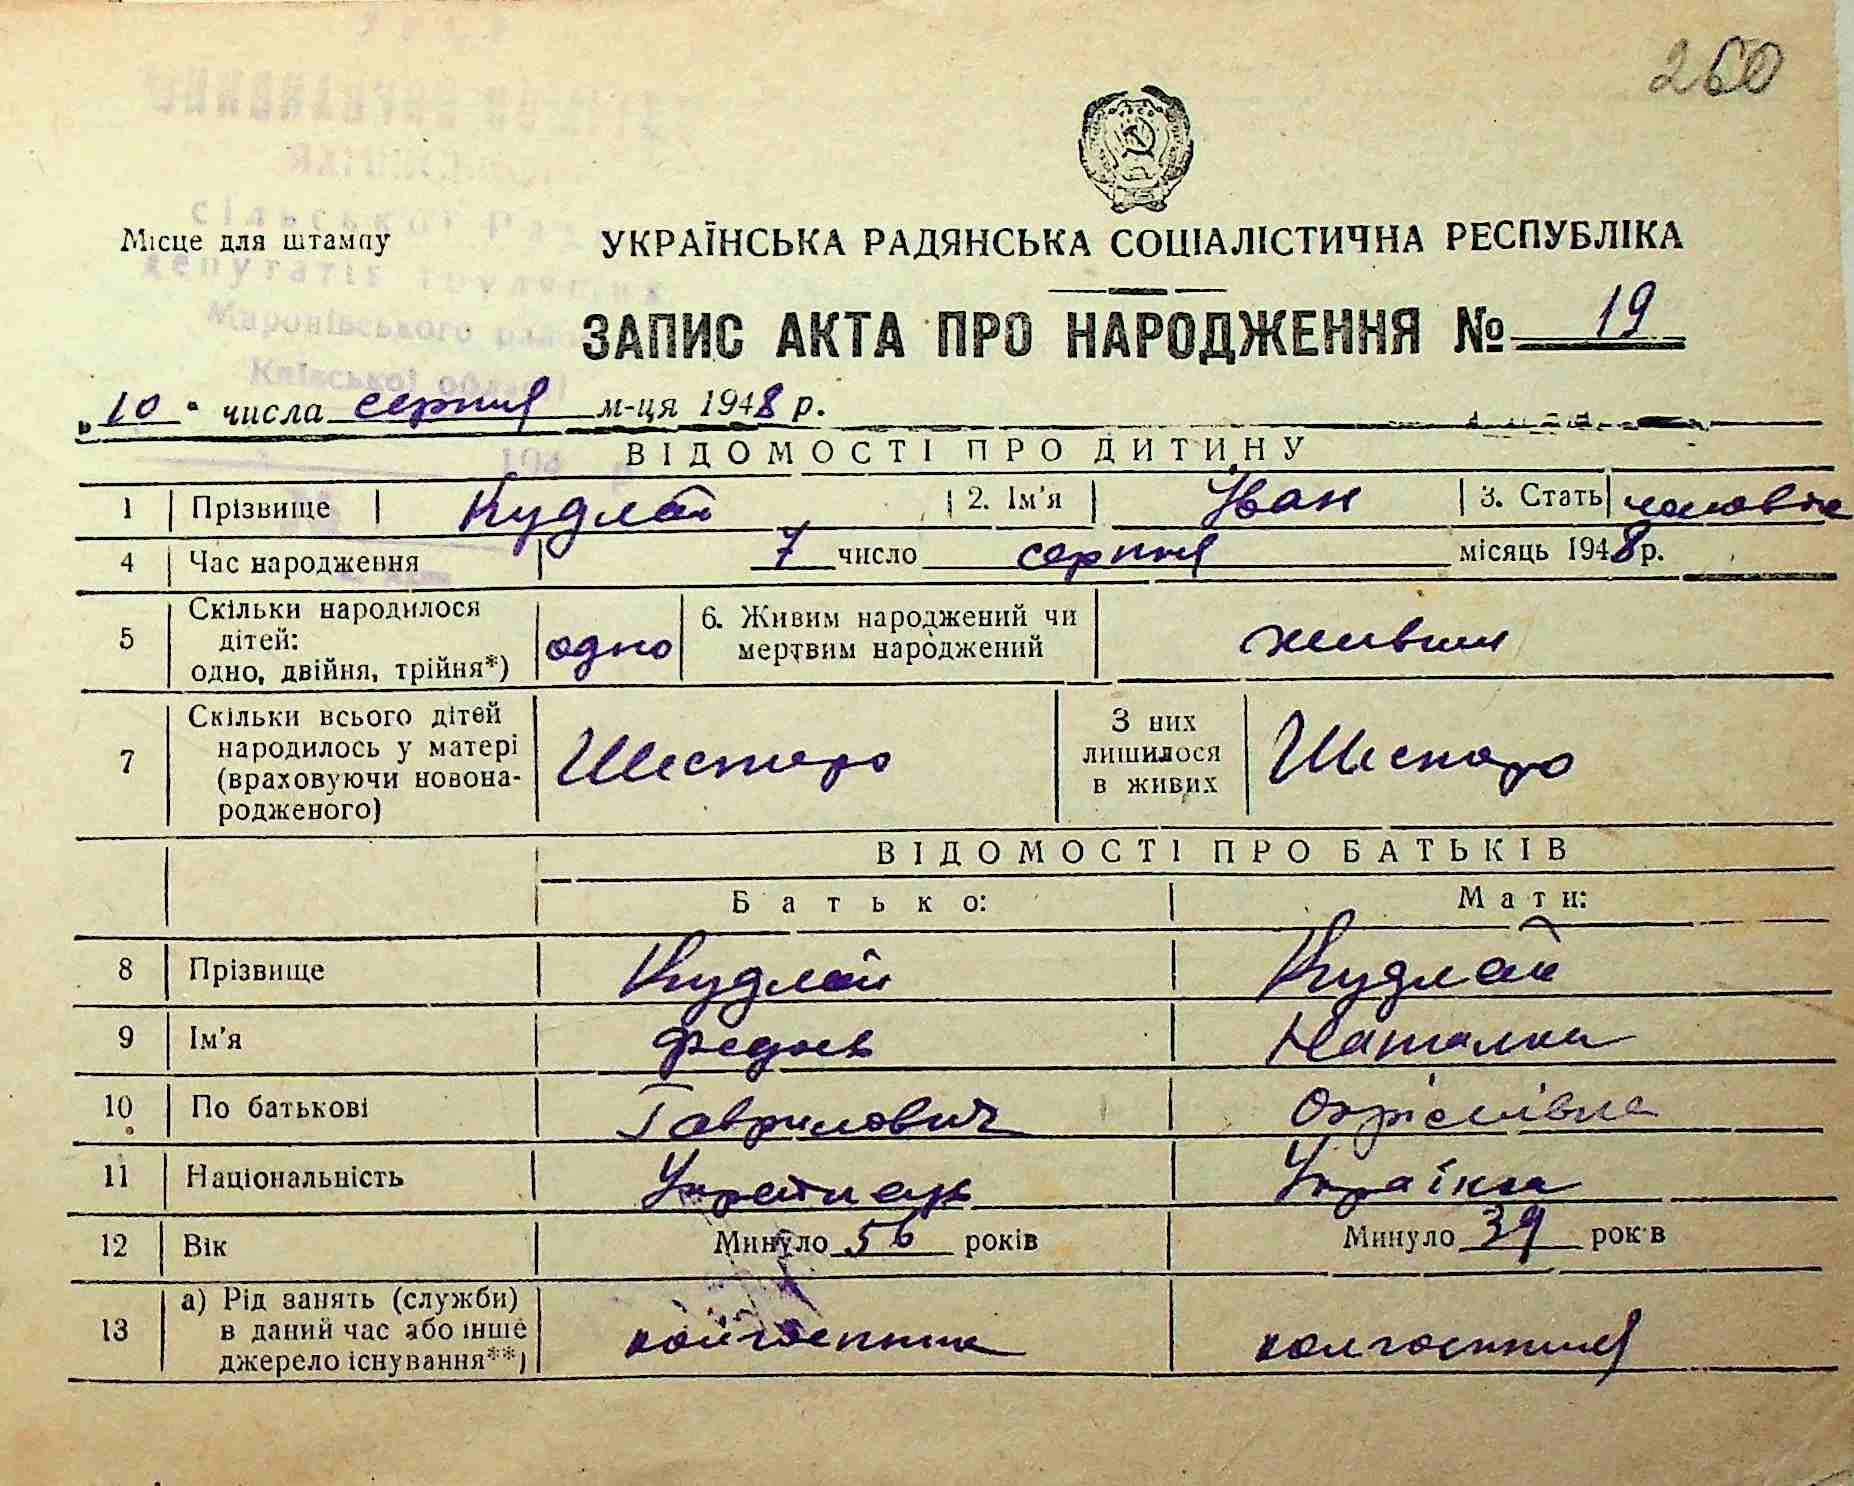 260
УРСР
сільської Ради
депутатів трудящих
Миронівського району
Київської області
Місце для штампу
УКРАЇНСЬКА РАДЯНСЬКА СОЦІАЛІСТИЧНА РЕСПУБЛІКА
ЗАПИС АКТА ПРО НАРОДЖЕННЯ № 19
„10" числа серпня м-ця 1948 р.
ВІДОМОСТІ ПРО ДИТИНУ
1 Прізвище Кудлай 2. Ім'я Іван 3. Стать чоловіча
4 Час народження 7 число серпня місяць 1948 р.
5 Скільки народилося дітей: одно, двійня, трійня*) одно 6. Живим народжений чи мертвим народжений живим
7 Скільки всього дітей народилось у матері (враховуючи новонародженого) Шестеро З них лишилося в живих Шестеро
ВІДОМОСТІ ПРО БАТЬКІВ
Батько: Мати:
8 Прізвище Кудлай Кудлай
9 Ім'я Федось Наталка
10 По батькові Гаврилович Охрімівна
11 Національність Українець Українка
12 Вік Минуло 56 років Минуло 39 років
13 а) Рід занять (служби) в даний час або інше джерело існування**) колгоспник колгоспниця